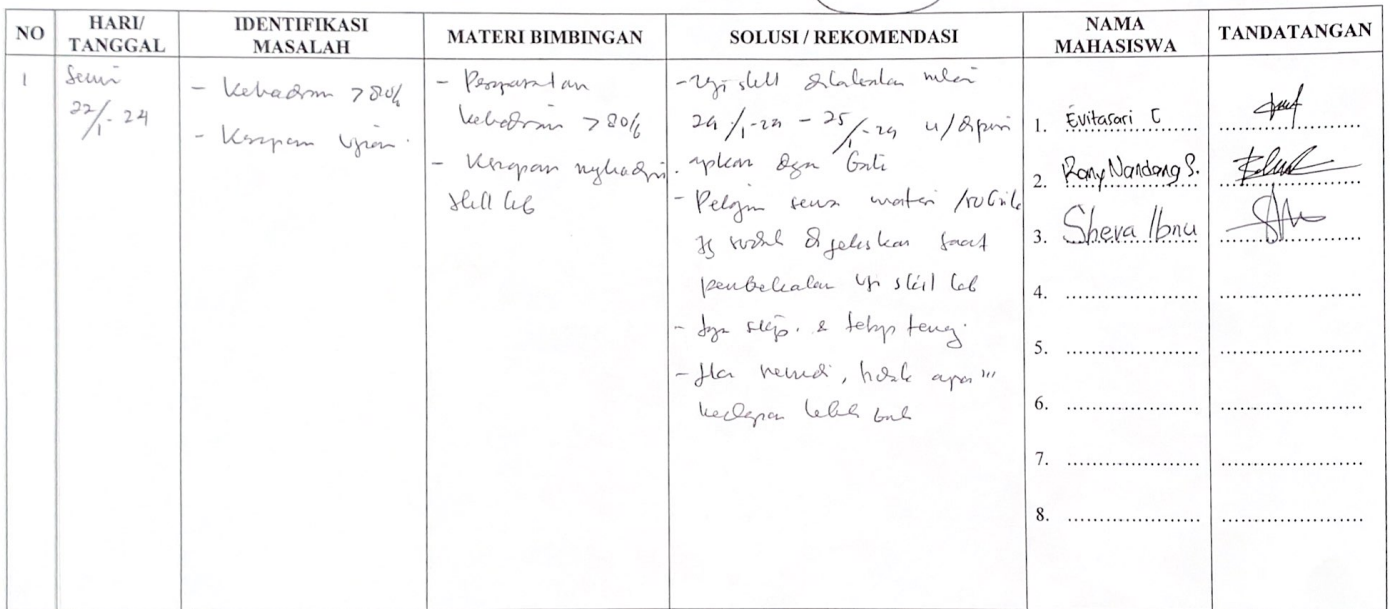 NO
HARI/
TANGGAL
IDENTIFIKASI
MASALAH
MATERI BIMBINGAN
SOLUSI / REKOMENDASI
NAMA
MAHASISWA
TANDATANGAN
1
Senin
22/1-24
- Kehadiran >80%
- Kesiapan Ujian.
- Persyaratan
kehadiran >80%
- Kesiapan
skill lab
- Uji skill dilaksanakan mulai
24/1-24 - 25/1-24 u/
dgn
- Pelajari semua materi
yg sudah dijelaskan saat
pembekalan uji skill lab
- & tetap tenang.
- Jika remidi,
lebih baik
1. Evitasari C
2. Rony Nandang S.
3. Sheva Ibnu
4.
5.
6.
7.
8.